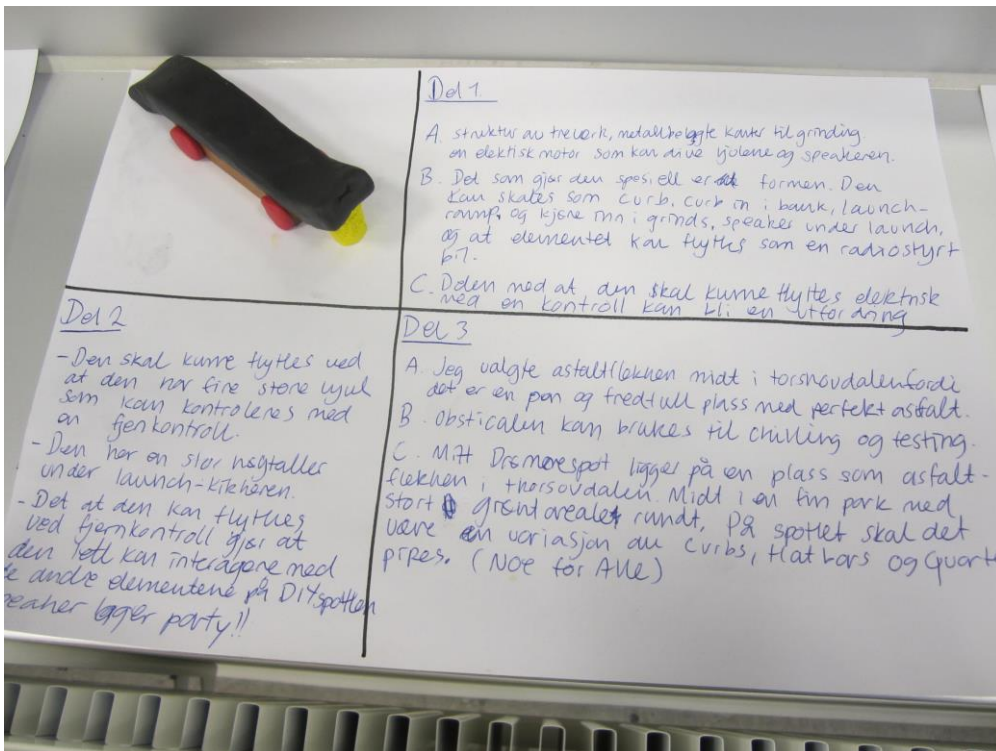 Del 1
A. struktur av treverk, metallbelagte kanter til grinding
en elektisk motor som kan drive hjulene og speakeren.
B. Det som gjør den spesiell er formen. Den
kan skates som curb, curb in i bank, launch-
ramp, og kjøre inn i grinds, speaker under launch,
og at elementet kan flyttes som en radiostyrt
bil.
C. Delen med at den skal kunne flyttes elektrisk
med en kontroll kan bli en utfordring
Del 2
- Den skal kunne flyttes ved
at den har fire store hjul
som kan kontroleres med
en fjenkontroll.
- Den har en stor høytaller
under launch-kikkeren.
- Det at den kan flyttes
ved fjernkontroll gjør at
den lett kan interagere med
de andre elementene på DIYspotten
speaker lager party!!
Del 3
A. Jeg valgte asfaltflekken midt i torshovdalen fordi
det er en pen og fredfull plass med perfekt asfalt.
B. Obsticalen kan brukes til chilling og testing.
C. Mitt Drømmespot ligger på en plass som asfalt-
flekken i thorsovdalen. Midt i en fin park med
stort grøntarealet rundt. På spottet skal det
være en variasjon av curbs, flatbars og Quarter
pipes. (Noe for Alle)